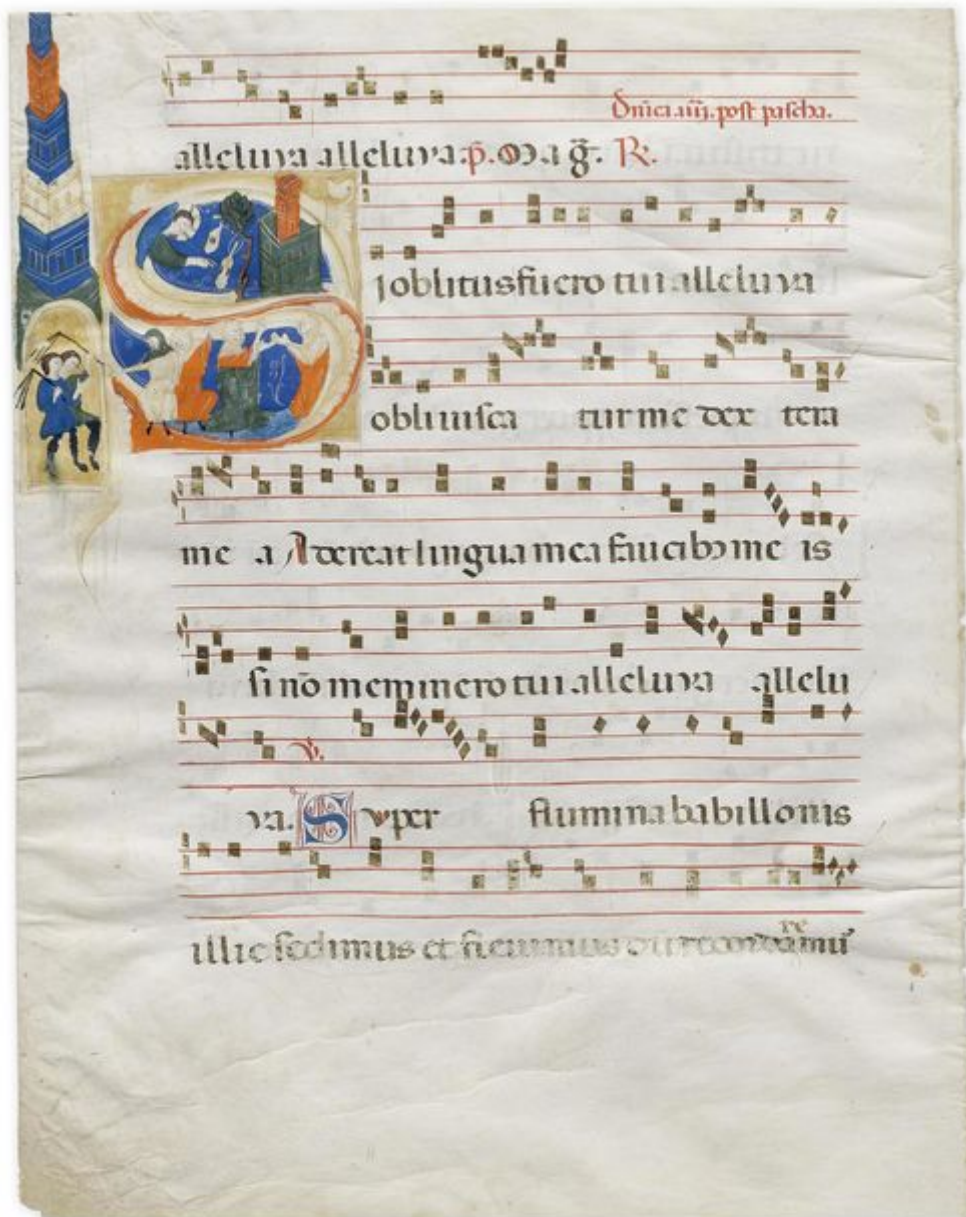 Dnica .iiij. post pascha.
alleluya alleluya. p. Mag. R.
Si oblitus fuero tui alleluya
obliuisca tur me dex tera
me a Adereat lingua mea faucib9 me is
si nō meminero tui alleluya allelu
ya. V. Super flumina babillonis
illic sedimus et fleuimus du recordaremur